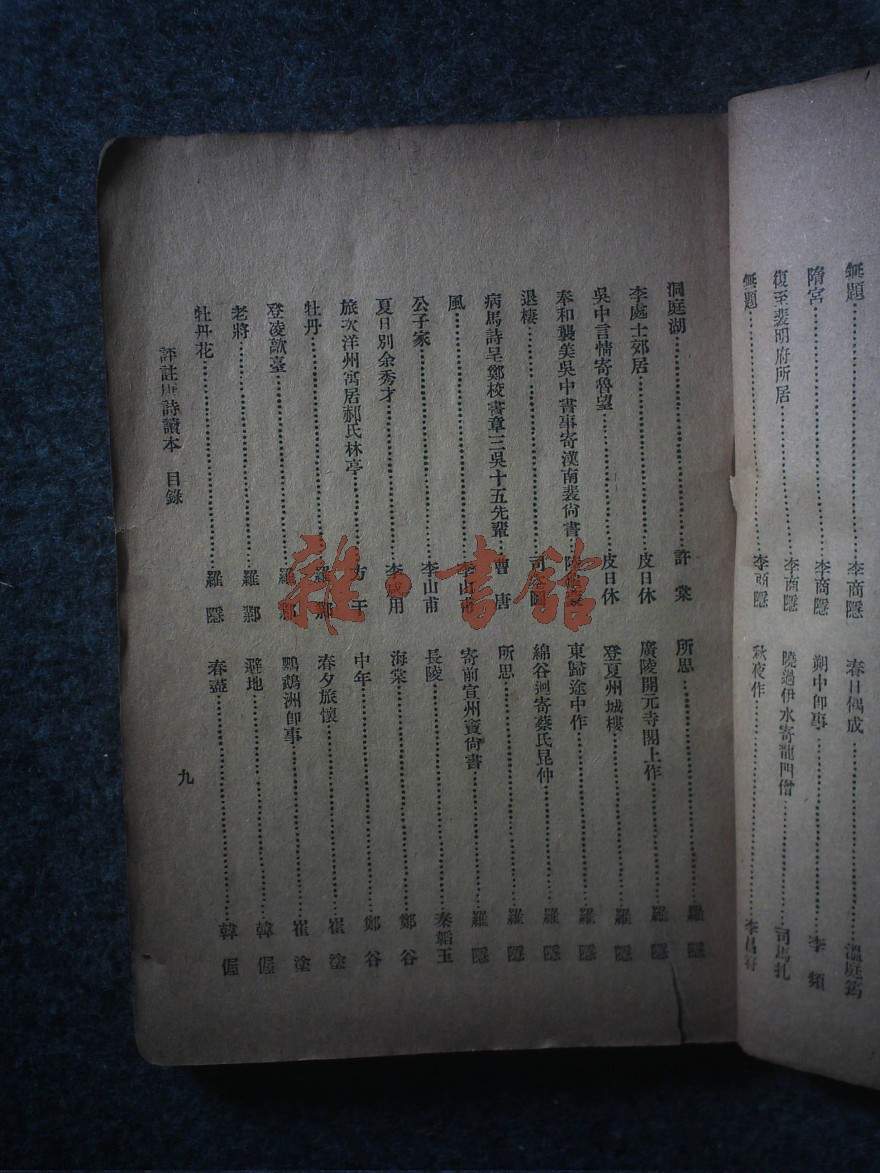 無題……李商隱
隋宮……李商隱
復至裴明府所居……李商隱
無題……李商隱
春日偶成……溫庭筠
朔中即事……李頻
曉過伊水寄龍門僧……司馬扎
秋夜作……李昌符
洞庭湖……許棠
李處士郊居……皮日休
吳中言情寄魯望……皮日休
奉和襲美吳中書事寄漢南裴尙書……陸龜蒙
退棲……司空圖
病馬詩呈鄭校書章三吳十五先輩……曹唐
風……李山甫
公子家……李山甫
夏日別余秀才……李咸用
旅次洋州寓居郝氏林亭……方干
牡丹……羅鄴
登凌歊臺……羅鄴
老將……羅鄴
牡丹花……羅隱
所思……羅隱
廣陵開元寺閣上作……羅隱
登夏州城樓……羅隱
東歸途中作……羅隱
綿谷迴寄蔡氏昆仲……羅隱
所思……羅隱
寄前宣州竇尙書……羅隱
長陵……秦韜玉
海棠……鄭谷
中年……鄭谷
春夕旅懷……崔塗
鸚鵡洲卽事……崔塗
避地……韓偓
春盡……韓偓
評註唐詩讀本 目錄
九
雜·書館